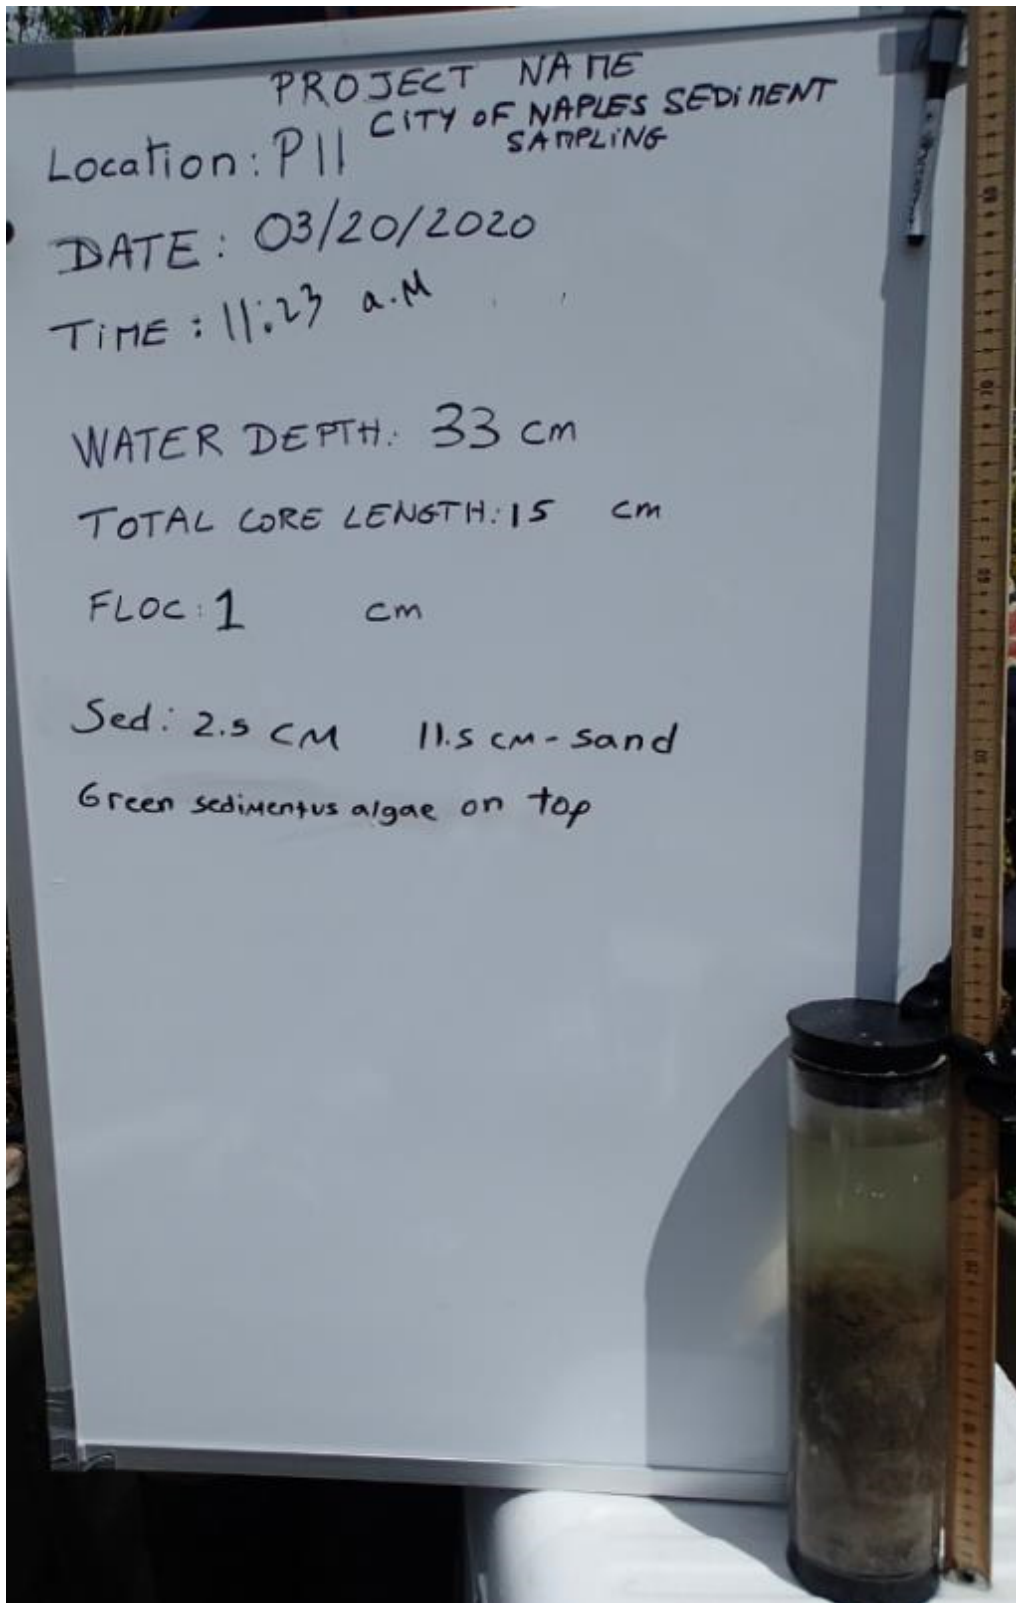 PROJECT NAME
CITY OF NAPLES SEDIMENT
SAMPLING
Location: P11
DATE: 03/20/2020
TIME: 11:23 a.M
WATER DEPTH: 33 cm
TOTAL CORE LENGTH: 15 cm
FLOC: 1 cm
Sed: 2.5 CM 11.5 CM - sand
Green sedimentus algae on top
80
70
60
50
40
20
10